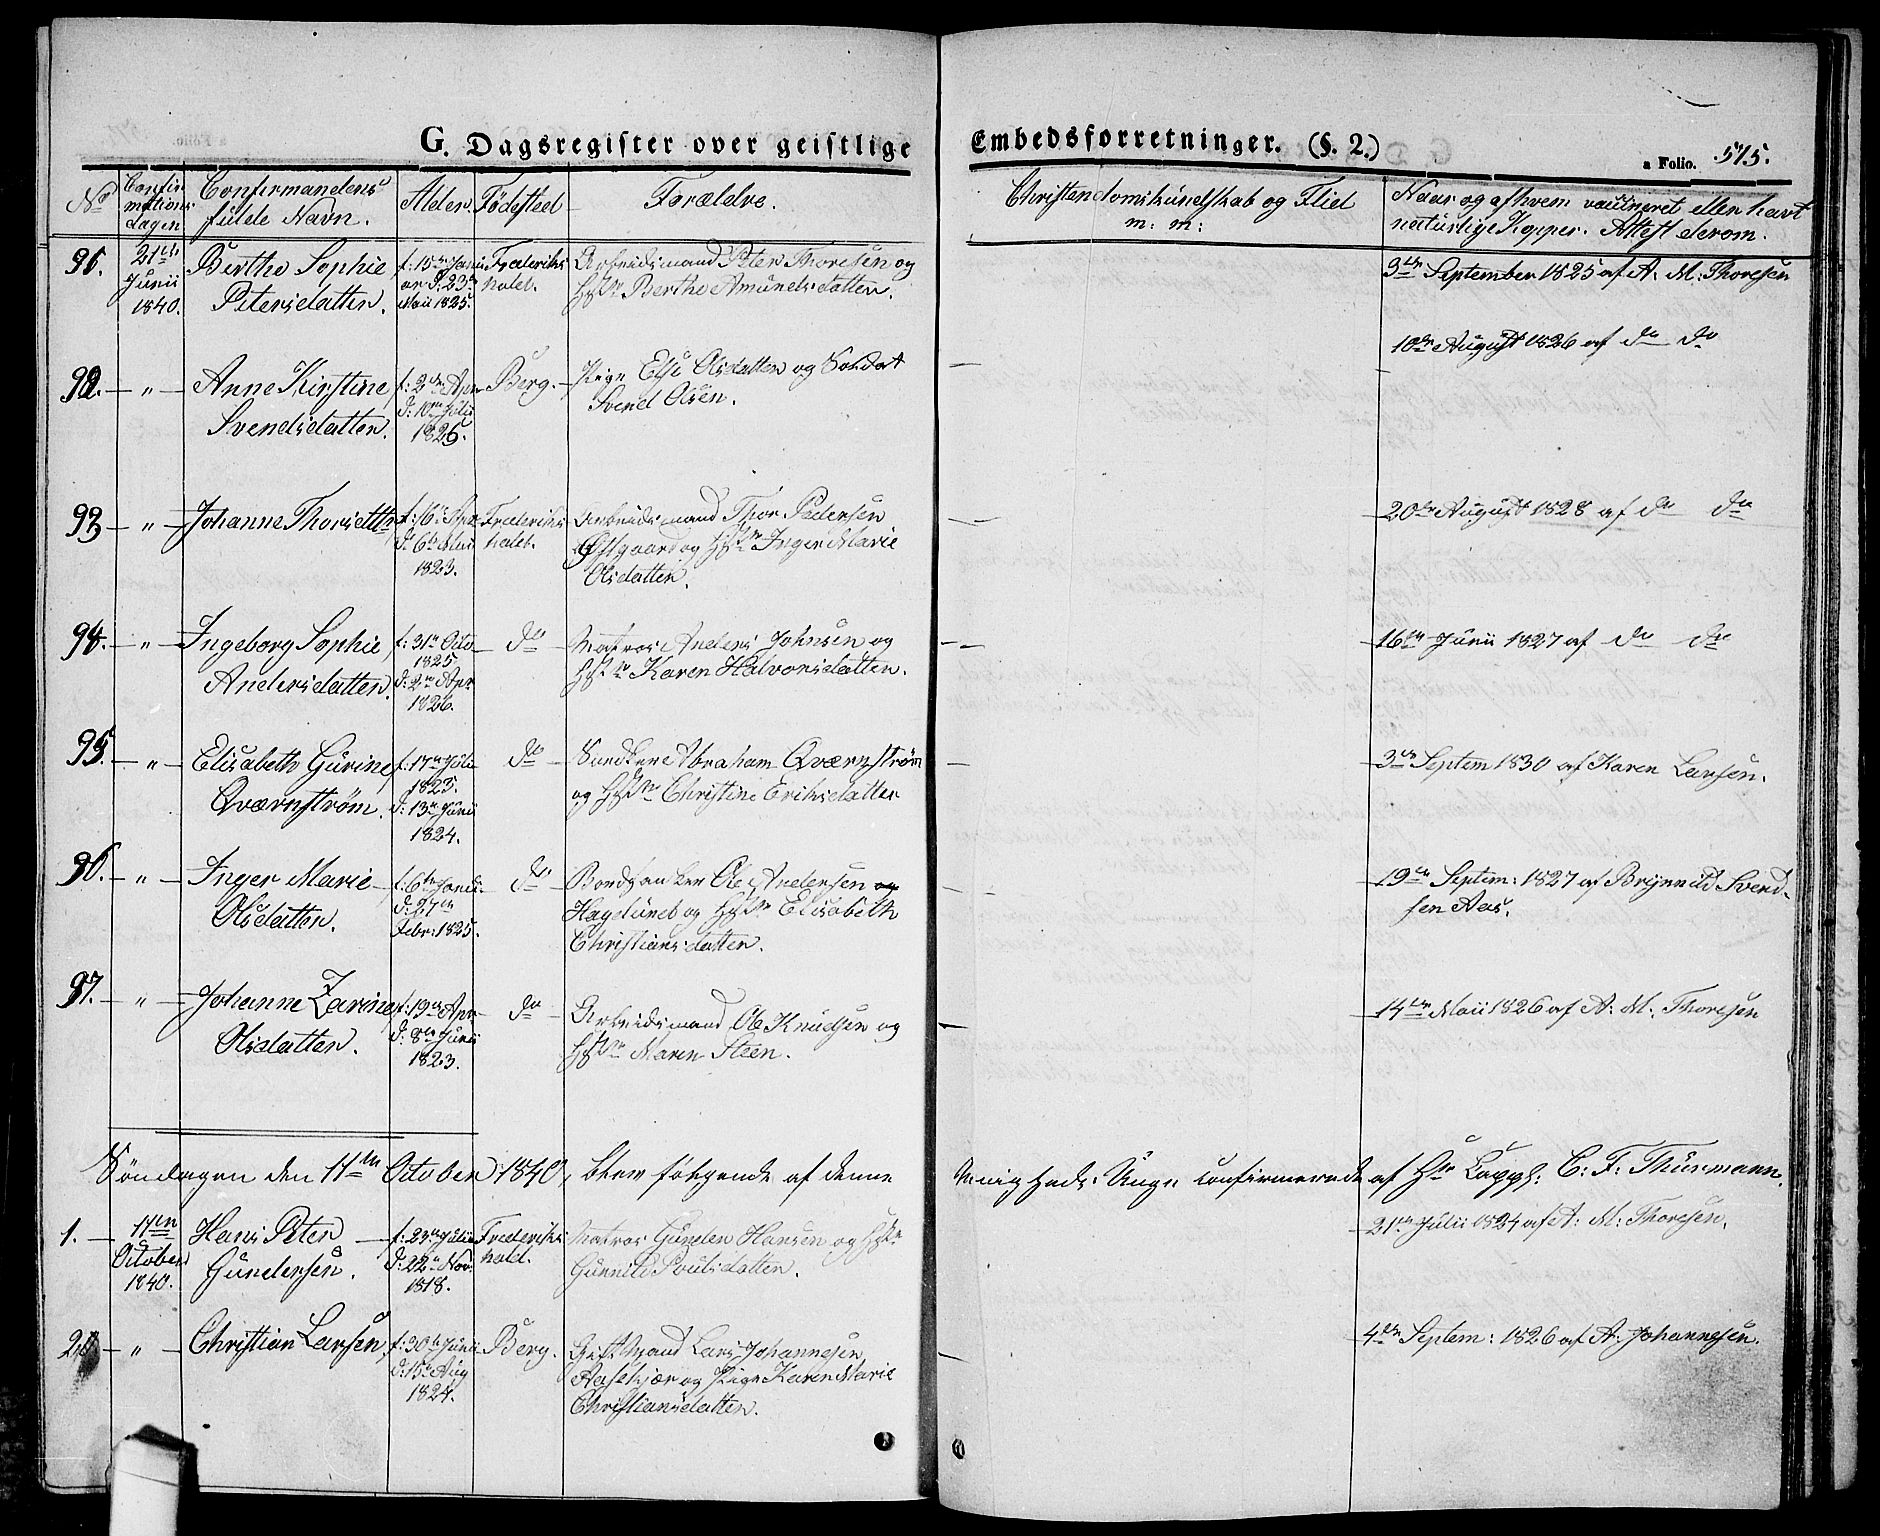 G. Dagsregister over geistlige Embedsforretninger. (§. 2.)
a Folio. 515.
No
Confir
mations
dagen
Confirmandens
fulde Navn.
Alder.
Fødested
Forældre.
Christendomskundskab og Fliid
m: m:
Naar og af hvem vaccineret eller havt
naturlige Kopper. Attest derom.
91.
21de
Junii
1840.
Berthe Sophie
Petersdatter.
f: 15de Janu
ar d: 23de
Maii 1825.
Frederiks
hald.
Arbeidsmand Peter Thoresen og
Hstr Berthe Amundsdatter.
3die September 1825 af A. M. Thoresen
92. — " —
Anne Kirstine
Svendsdatter.
f: 2den Apr
d: 10de Julii
1825.
Berg.
Pige Else Olsdatter og Soldat
Svend Olsen.
10de August 1826 af do do
93 — " —
Johanne Thorsdttr
f: 16de Apr
d: 6te Maii
1823.
Frederiks
hald.
Arbeidsmand Thor Pedersen
Østgaard og Hstr Inger Marie
Olsdatter.
20de August 1828 af do do
94. — " —
Ingeborg Sophie
Andersdatter.
f: 31te Octo
1825
d: 2den Apr
1826.
do
Matros Anders Johnsen og
Hstr Karen Halvorsdatter.
16de Junii 1827 af do do
95. — " —
Elisabeth Gurine
Qværnstrøm.
f: 17de Julii
1823.
d: 13de Junii
1824.
do
Snedker Abraham Qværnstrøm
og Hstr Christine Eriksdatter
3die Septem 1830 af Karen Larsen.
96. — " —
Inger Marie
Olsdatter.
f: 6te Janu
d: 27de
Febr: 1825.
do
Ole Andersen og
Haglund og Hstr Elisabeth
Christiansdatter.
19de Septem: 1827 af Brynnild Svend-
sen Aas.
97. — " —
Johanne Zarine
Olsdatter.
f: 19de Apr
d: 8de Junii
1823.
do
Arbeidsmand Ole Knudsen og
Hstr Maren Steen.
14de Maii 1826 af A: M. Thoresen
Søndagen den 11te October 1840, blev følgende af denne Menigheds Unge confirmerede af Hr Capp: C: F: Thurmann.
1. —
11te
October
1840.
Hans Peter
Gundersen.
f: 23de Julii
d: 22de Nov:
1818.
Frederiks
hald.
Matros Gunder Hansen og Hstr
Gunnild Poulsdatter.
21de Julii 1824 af A: M: Thoresen.
2. — " —
Christian Larsen
f: 30te Junii
d: 15de Aug
1824.
Berg.
Gift Mand Lars Johannesen
Aasekjær og Pige Karen Marie
Christiansdatter.
4de Septem: 1826 af A: Johannesen.